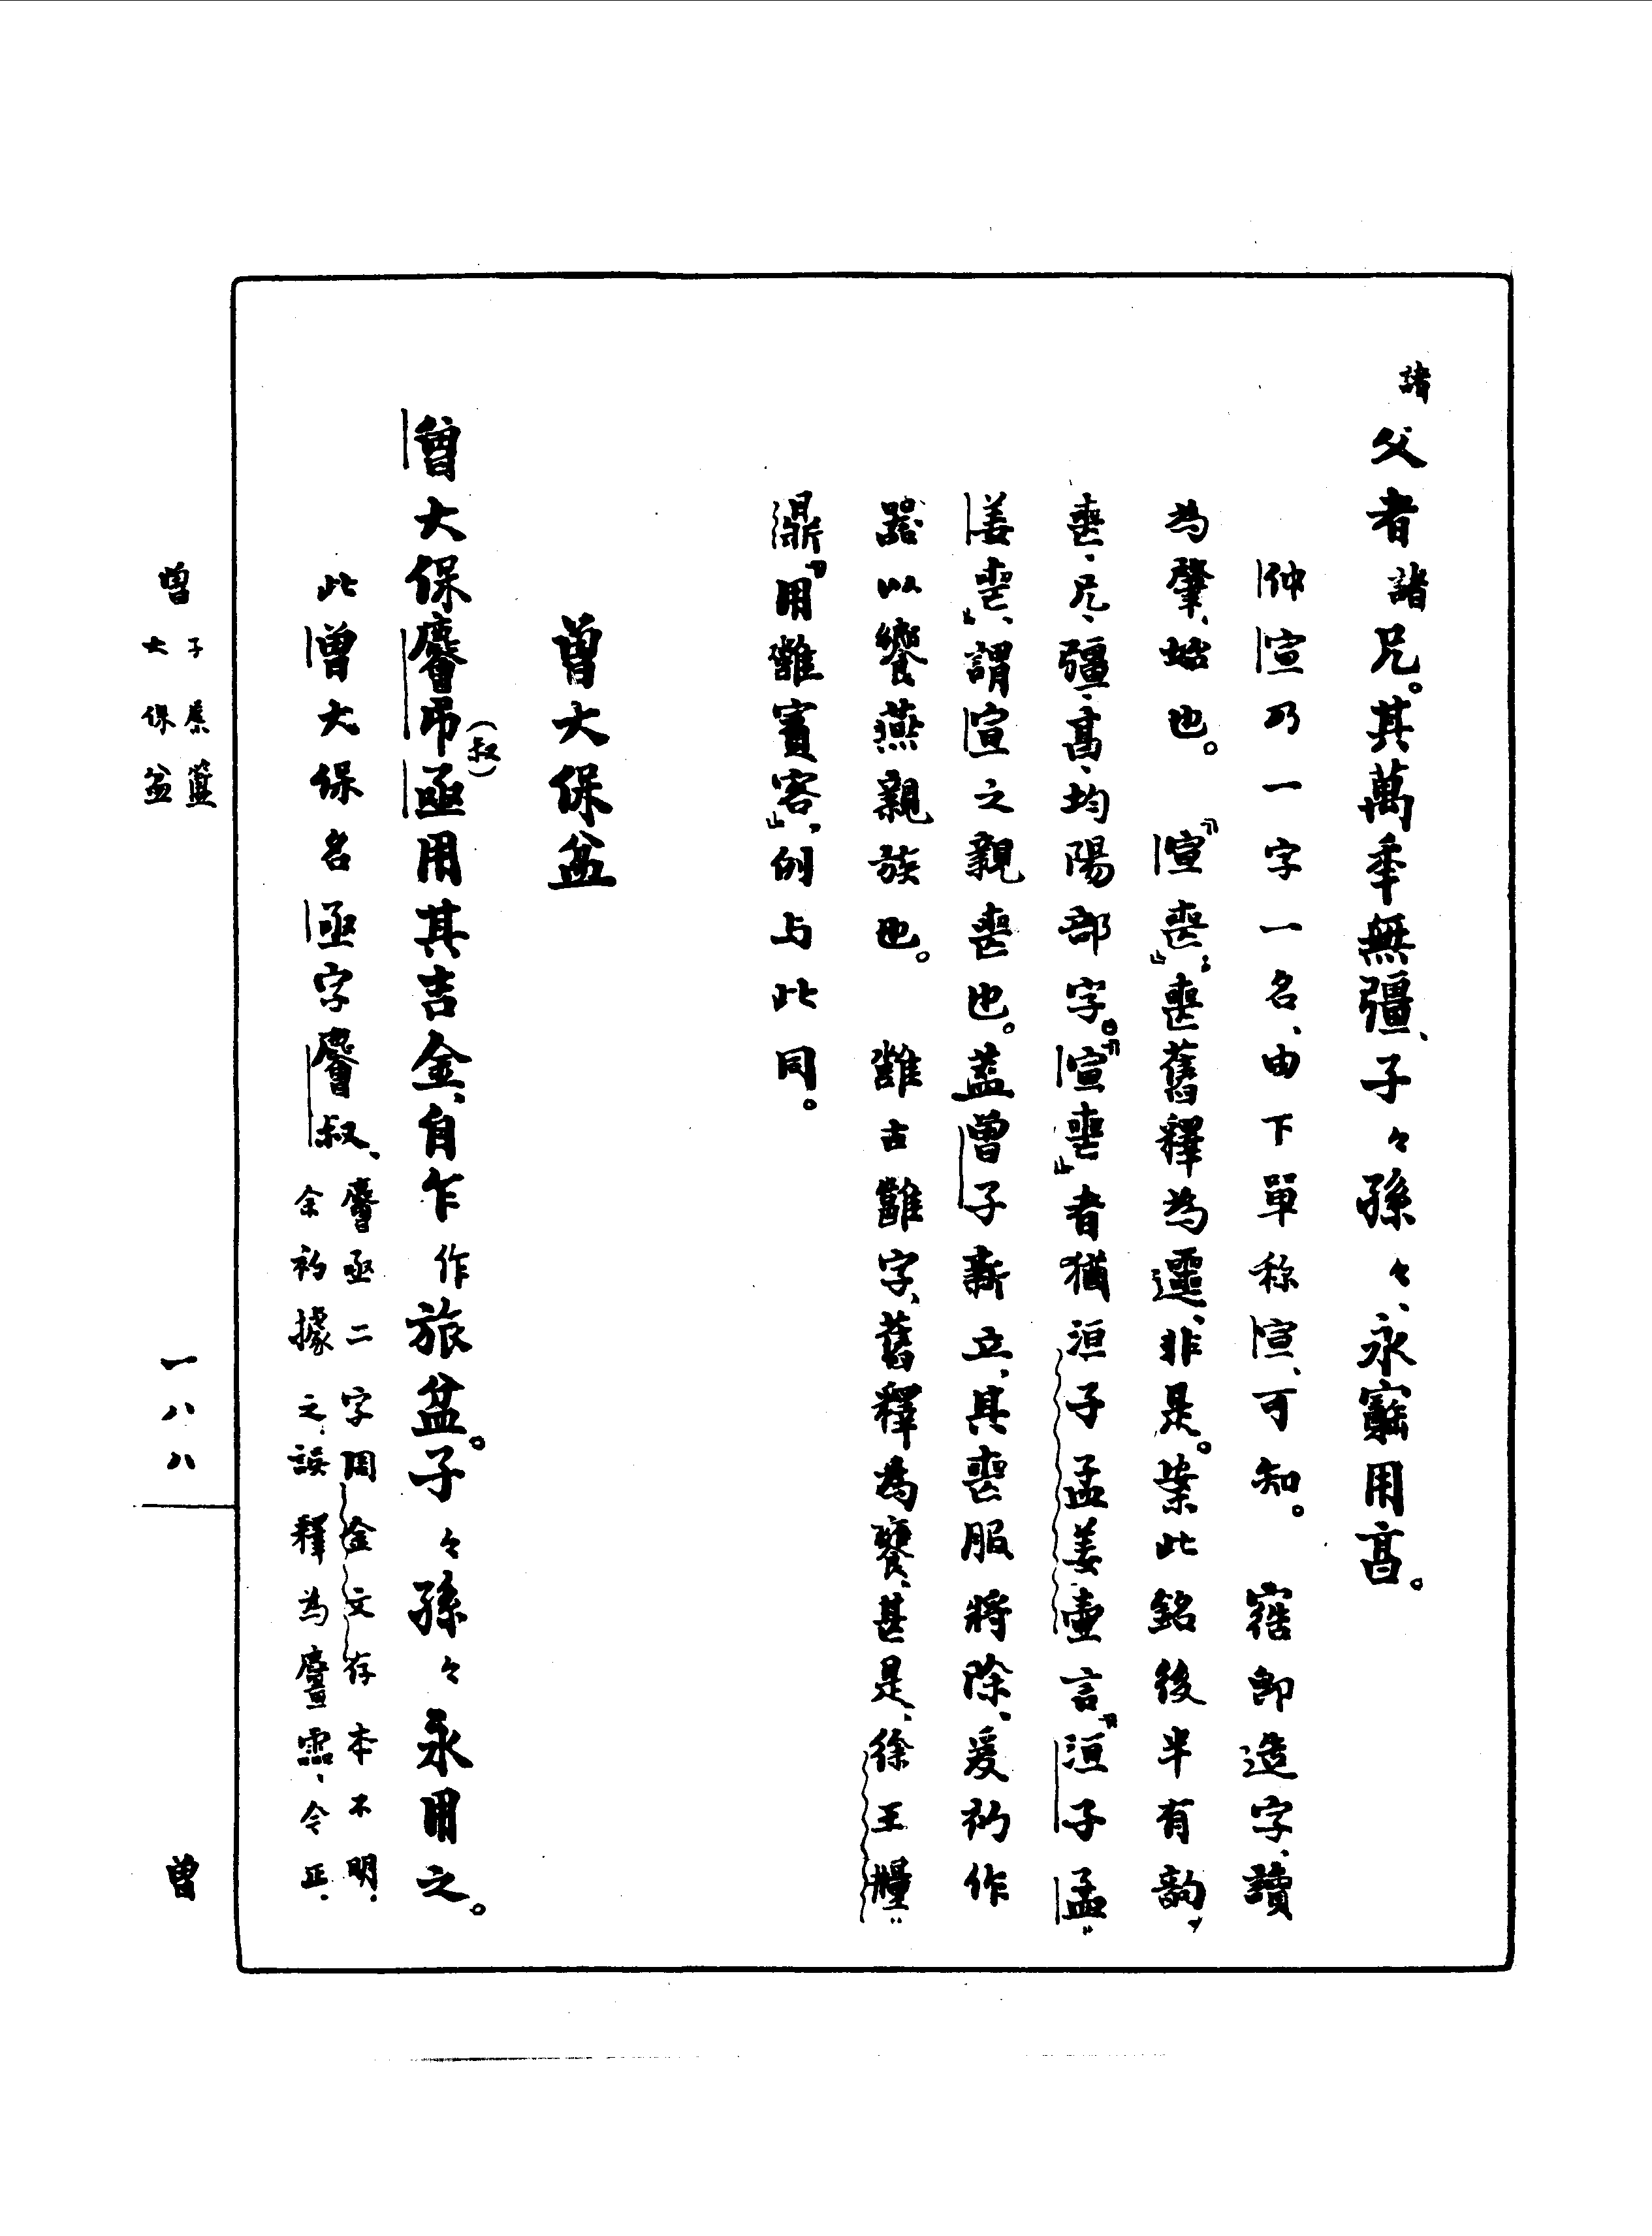 諸父者諸兄。其萬年無彊、子々孫々、永寶用亯。
仲宣乃一字一名、由下單称宣、可知。　窖即造字、讀
為肇、始也。　『宣喪』；喪舊釋為䙴、非是。案此銘後半有韵，
喪、兄、彊、亯、均陽部字。『宣喪』者猶洹子孟姜壺言『洹子孟
姜喪』、謂宣之親喪也。蓋曾子新立、其喪服將除、爰初作
器以饗燕親族也。　雝古雝字、舊釋為饔、甚是、徐王糧
鼎『用雝賓客』，例与此同。
曾大保盆
曾大保麐弔(叔)亟用其吉金、自乍作旅盆。子々孫々永用之。
此曾大保名亟字麐叔、麐亟二字周金文存本不明，
余初據之，誤釋為麐𠱠、今正，
曾子𠫑簠
大保盆
一八八
曾